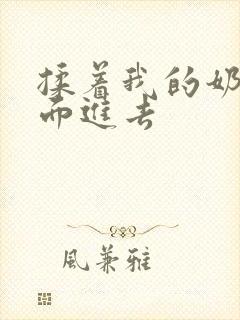 揉着我的奶
而進去
風兼雅